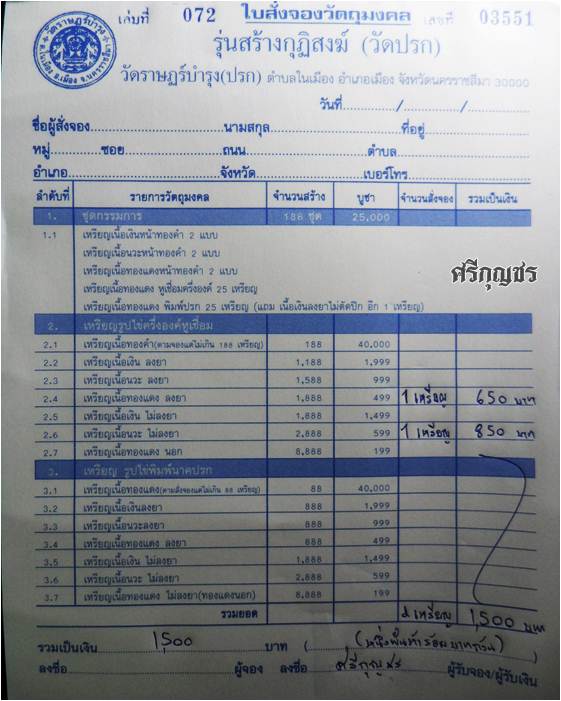 เล่มที่ 072 ใบสั่งจองวัตถุมงคล เลขที่ 03551
รุ่นสร้างกุฏิสงฆ์ (วัดปรก)
วัดราษฎร์บำรุง(ปรก) ตำบลในเมือง อำเภอเมือง จังหวัดนครราชสีมา 30000
วันที่............/............/............
ชื่อผู้สั่งจอง............นามสกุล............ที่อยู่............
หมู่............ซอย............ถนน............ตำบล............
อำเภอ............จังหวัด............เบอร์โทร............
ลำดับที่ รายการวัตถุมงคล จำนวนสร้าง บูชา จำนวนสั่งจอง รวมเป็นเงิน
1. ชุดกรรมการ 188 ชุด 25,000
1.1 เหรียญเนื้อเงินหน้าทองคำ 2 แบบ
เหรียญเนื้อนวะหน้าทองคำ 2 แบบ
เหรียญเนื้อทองแดงหน้าทองคำ 2 แบบ
เหรียญเนื้อทองแดง หูเชื่อมครึ่งองค์ 25 เหรียญ
เหรียญเนื้อทองแดง พิมพ์ปรก 25 เหรียญ (แถม เนื้อเงินลงยาไม่ตัดปีก อีก 1 เหรียญ)
ศรีกุญชร
2. เหรียญรูปไข่ครึ่งองค์หูเชื่อม
2.1 เหรียญเนื้อทองคำ(ตามจองแต่ไม่เกิน 188 เหรียญ) 188 40,000
2.2 เหรียญเนื้อเงิน ลงยา 1,188 1,999
2.3 เหรียญเนื้อนวะ ลงยา 1,588 999
2.4 เหรียญเนื้อทองแดง ลงยา 1,888 499 1 เหรียญ 650 บาท
2.5 เหรียญเนื้อเงิน ไม่ลงยา 1,888 1,499
2.6 เหรียญเนื้อนวะ ไม่ลงยา 2,888 599 1 เหรียญ 850 บาท
2.7 เหรียญเนื้อทองแดง นอก 8,888 199
3. เหรียญ รูปไข่พิมพ์นาคปรก
3.1 เหรียญเนื้อทองแดง(ตามสั่งจองแต่ไม่เกิน 88 เหรียญ) 88 40,000
3.2 เหรียญเนื้อเงินลงยา 888 1,999
3.3 เหรียญเนื้อนวะลงยา 888 999
3.4 เหรียญเนื้อทองแดง ลงยา 888 499
3.5 เหรียญเนื้อเงิน ไม่ลงยา 1,888 1,499
3.6 เหรียญเนื้อนวะ ไม่ลงยา 2,888 599
3.7 เหรียญเนื้อทองแดง ไม่ลงยา(ทองแดงนอก) 8,888 199
รวมยอด 2 เหรียญ 1,500 บาท
รวมเป็นเงิน 1,500 บาท (หนึ่งพันห้าร้อยบาทถ้วน)
ลงชื่อ............ผู้จอง ลงชื่อ ศรีกุญชร ผู้รับจอง/ผู้รับเงิน